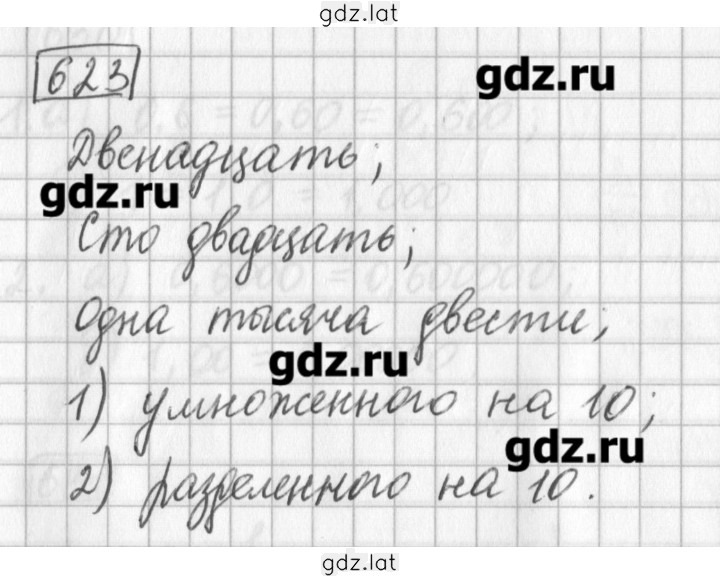 gdz.lat
623
gdz.ru
Двенадцать;
gdz.ru
Сто двадцать;
Одна тысяча двести;
gdz.ru
1) умноженного на 10;
gdz.ru
2) разделенного на 10.
gdz.lat